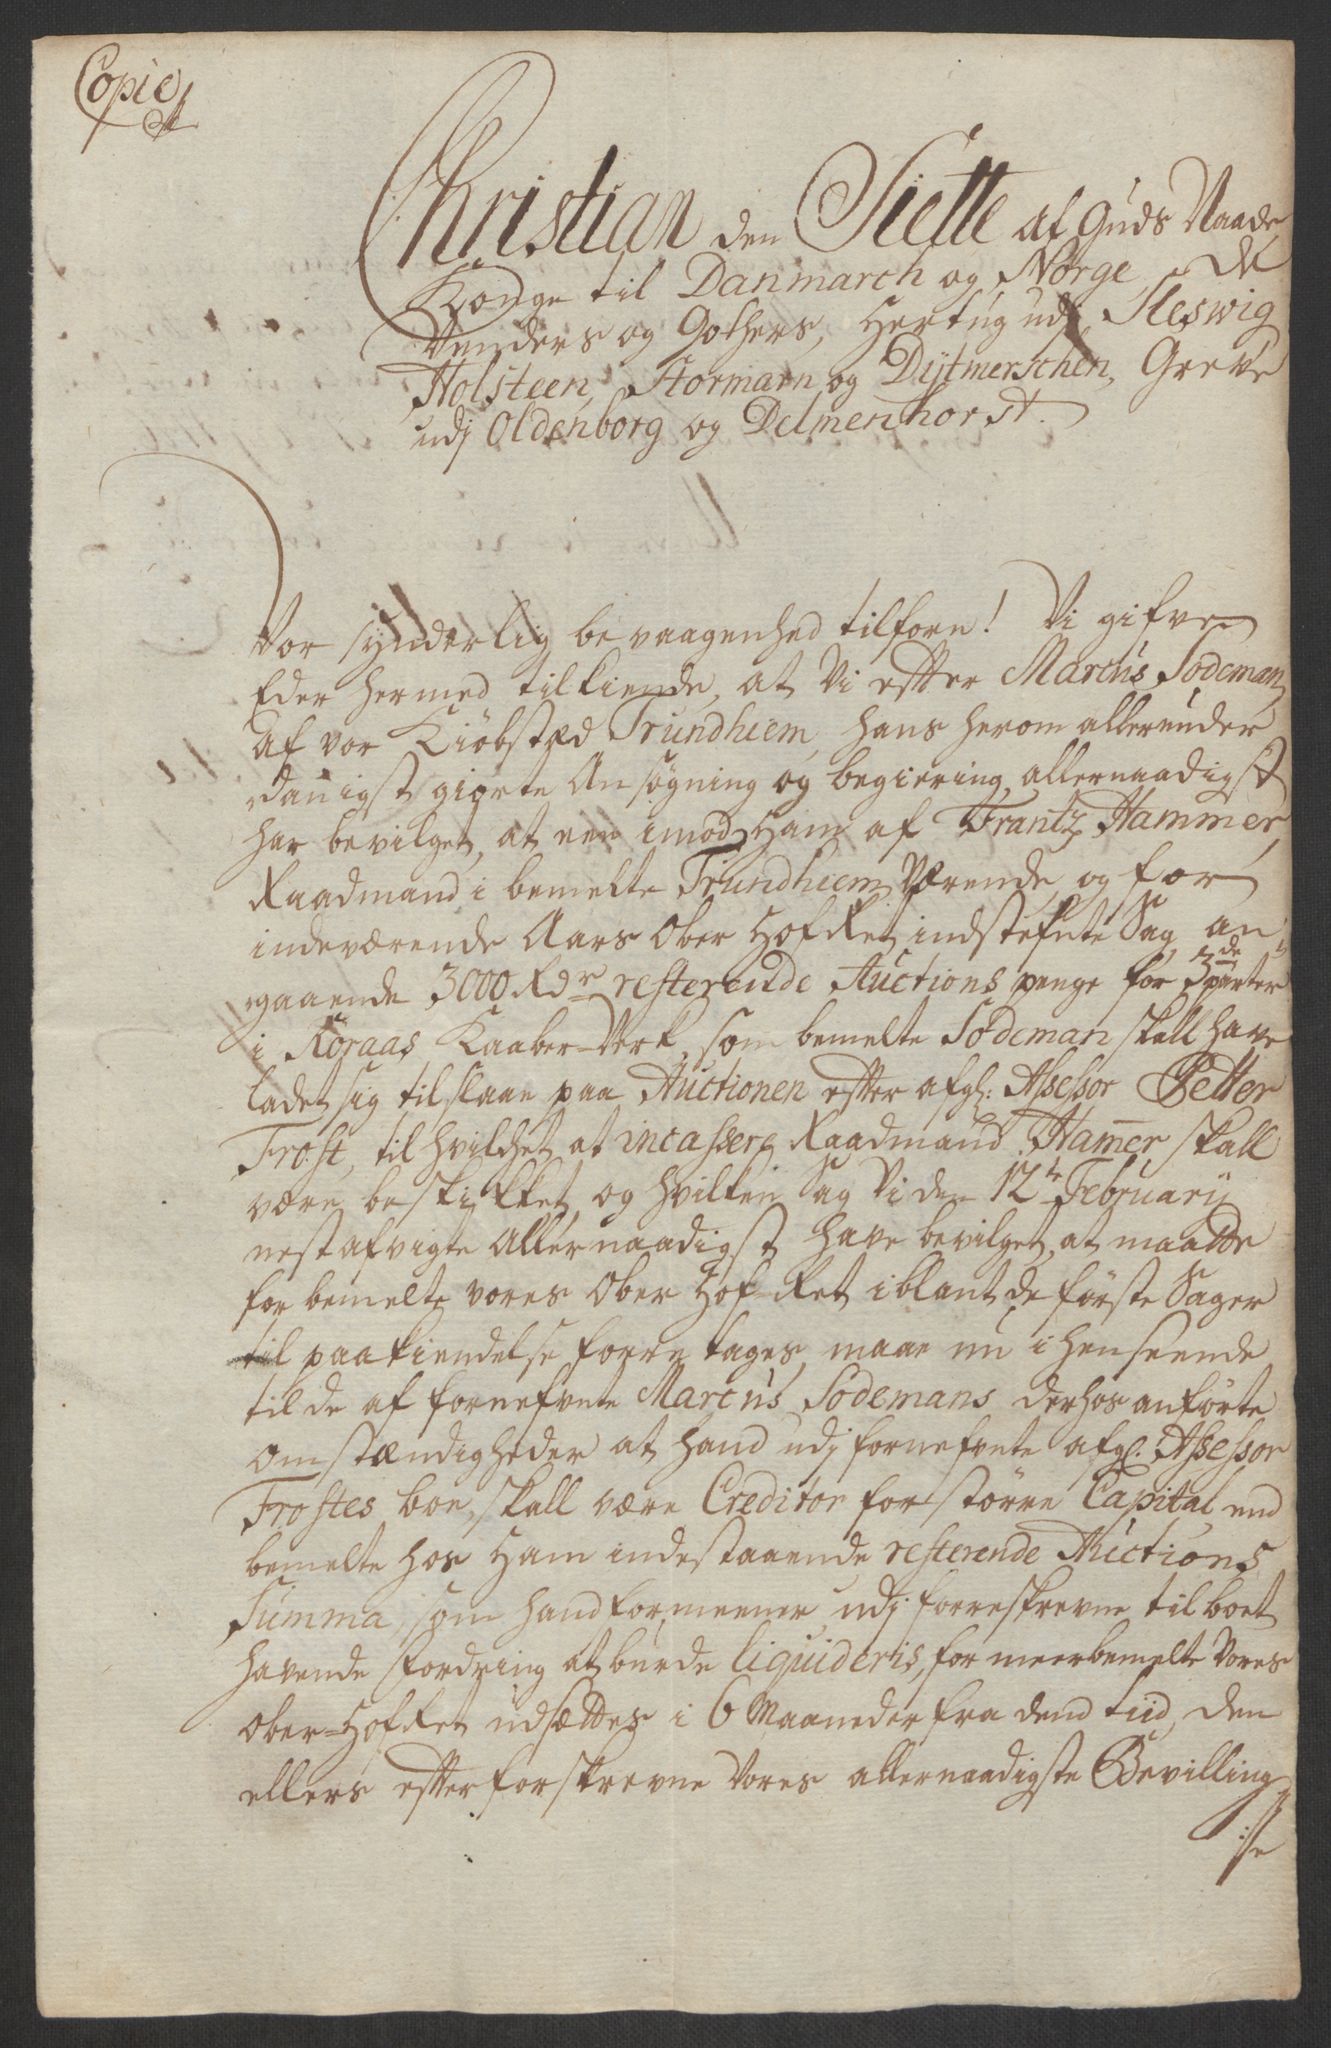 Copie
Christian den Siette af Guds Naade
Konge til Danmarch og Norge, de
Venders og Gothers, Hertug udj Sleswig
Holsteen, Stormarn og Dijtmerschen, Greve
udj Oldenborg og Delmenhorst.
Vor synderlig bevaagenhed tilforn! Vi gifve
Eder hermed tilkiende, at Vi effter Marcus Sodeman
af vor Kiöbsted Trundhiem, hans herom allerunder
danigst giorte Ansøgning og begiering, allernaadigst
har bevilget, at een imod Ham af Frantz Hammer,
Raadmand i bemelte Trundhiem Værende, og for
indeværende Aars Ober Hof Ret indstefnte Sag, an-
gaaende 3000 Rdr resterende Auctions penge for 3de parter
i Röraas Kaaber-Verk, som bemelte Sodeman skall have
ladet sig tilslaae paa Auctionen effter afgl: Assessor Petter
Frost, til hvilchet at incassere Raadmand Ham̄er skall
være beskikket, og hvilken Sag Vi den 12te Februarij
nestafvigte Allernaadigst have bevilget, at maatte
for bemelte vores Ober Hof-Ret iblant de förste Sager
til paakiendelse foretages, maae nu i henseende
til de af fornefnte Marcus Sodemans derhos anförte
omstændigheder at hand udj fornefnte afgl: Assessor
Frostes boe, skall være Creditor for större Capital, end
bemelte hos Ham indestaaende resterende Auctions
Summa, som hand formeener udj forreskrevne til boet
havende fordring at burde liquideris, for meerbemelte Vores
Ober-Hof Ret udsættes i 6 Maaneder fra dend tiid, den
ellers effter forskrevne Vores allernaadigste Bevilling